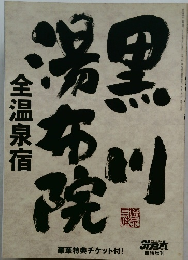 黒川
湯布院
全温泉宿
豪華特典チケット付!